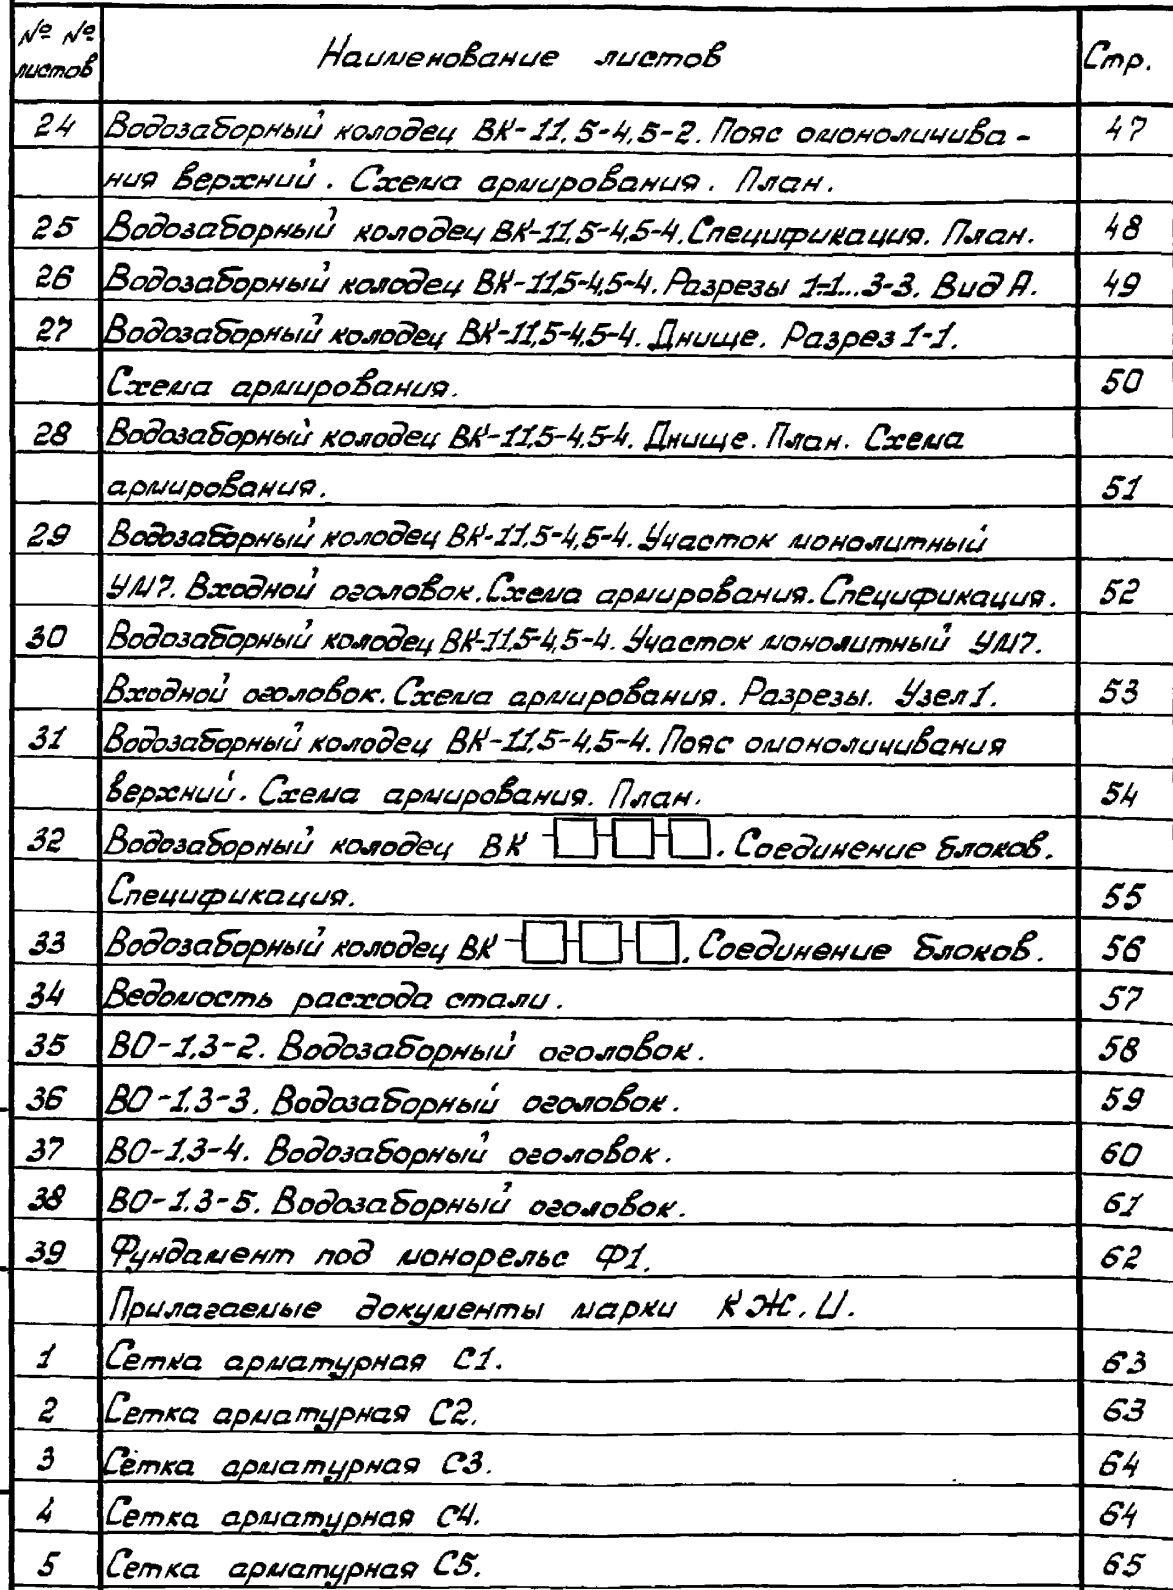 № №
листов Наименование листов Стр.
24 Водозаборный колодец ВК-11,5-4,5-2. Пояс омоноличива- 47
ния верхний. Схема армирования. План.
25 Водозаборный колодец ВК-11,5-4,5-4. Спецификация. План. 48
26 Водозаборный колодец ВК-11,5-4,5-4. Разрезы 1-1...3-3. Вид А. 49
27 Водозаборный колодец ВК-11,5-4,5-4. Днище. Разрез 1-1.
Схема армирования. 50
28 Водозаборный колодец ВК-11,5-4,5-4. Днище. План. Схема
армирования. 51
29 Водозаборный колодец ВК-11,5-4,5-4. Участок монолитный
УМ7. Входной оголовок. Схема армирования. Спецификация. 52
30 Водозаборный колодец ВК-11,5-4,5-4. Участок монолитный УМ7.
Входной оголовок. Схема армирования. Разрезы. Узел 1. 53
31 Водозаборный колодец ВК-11,5-4,5-4. Пояс омоноличивания
верхний. Схема армирования. План. 54
32 Водозаборный колодец ВК -□-□-□. Соединение блоков.
Спецификация. 55
33 Водозаборный колодец ВК -□-□-□. Соединение блоков. 56
34 Ведомость расхода стали. 57
35 ВО-1,3-2. Водозаборный оголовок. 58
36 ВО-1,3-3. Водозаборный оголовок. 59
37 ВО-1,3-4. Водозаборный оголовок. 60
38 ВО-1,3-5. Водозаборный оголовок. 61
39 Фундамент под монорельс Ф1. 62
Прилагаемые документы марки КЖ.И.
1 Сетка арматурная С1. 63
2 Сетка арматурная С2. 63
3 Сетка арматурная С3. 64
4 Сетка арматурная С4. 64
5 Сетка арматурная С5. 65